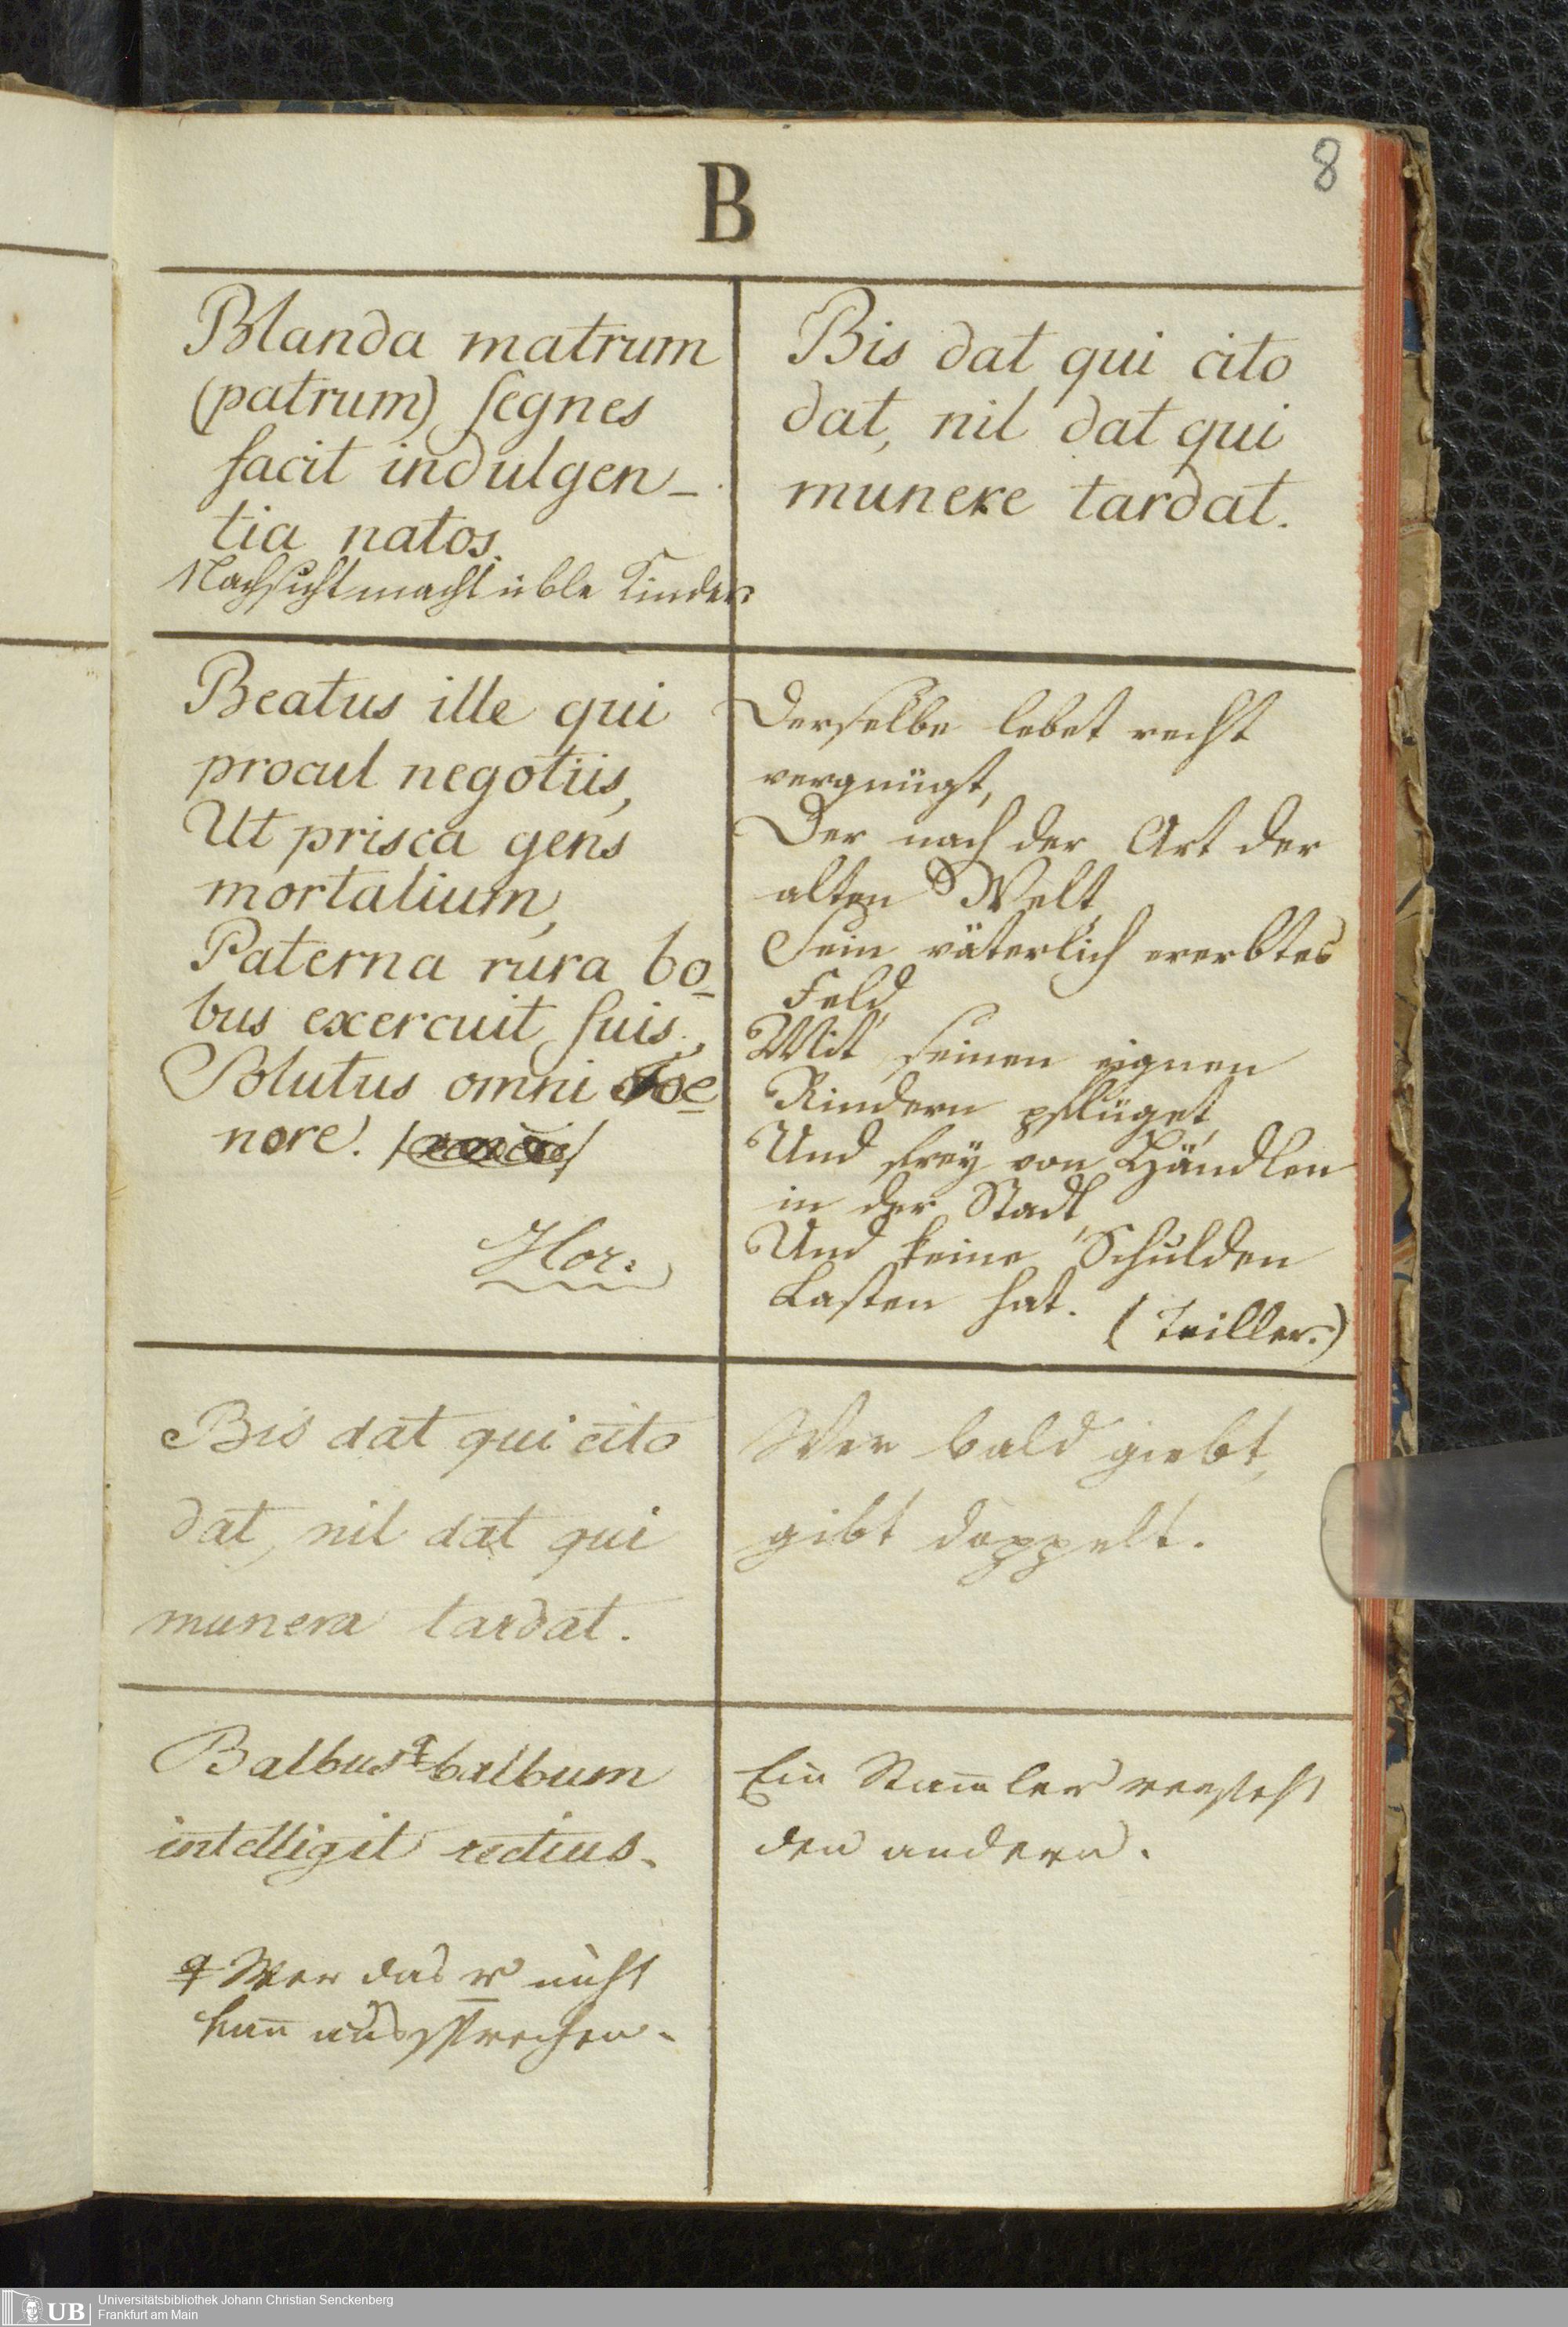 8
B
Blanda matrum
(patrum) segnes
facit indulgen-
tia natos.
Nachsicht macht üble Kinder
Bis dat qui cito
dat, nil dat qui
munere tardat.
Beatus ille qui
procul negotiis,
Ut prisca gens
mortalium,
Paterna rura bo-
bus exercuit suis,
Solutus omni foe-
nore.
Hor:
Derselbe lebet recht
vergnügt,
Der nach der Art der
alten Welt,
Sein väterlich ererbtes
Feld,
Mit seinen eignen
Rindern pflüget,
Und frey von Händlen
in der Stadt,
Und keine Schulden
Lasten hat. (Triller.)
Bis dat qui cito
dat, nil dat qui
munera tardat.
Wer bald giebt,
gibt doppelt.
Balbus balbum
intelligit rectius.
Wer das r nicht
kan̄ aussprechen.
Ein Stam̄ler versteht
den andern.
UB Universitätsbibliothek Johann Christian Senckenberg
Frankfurt am Main